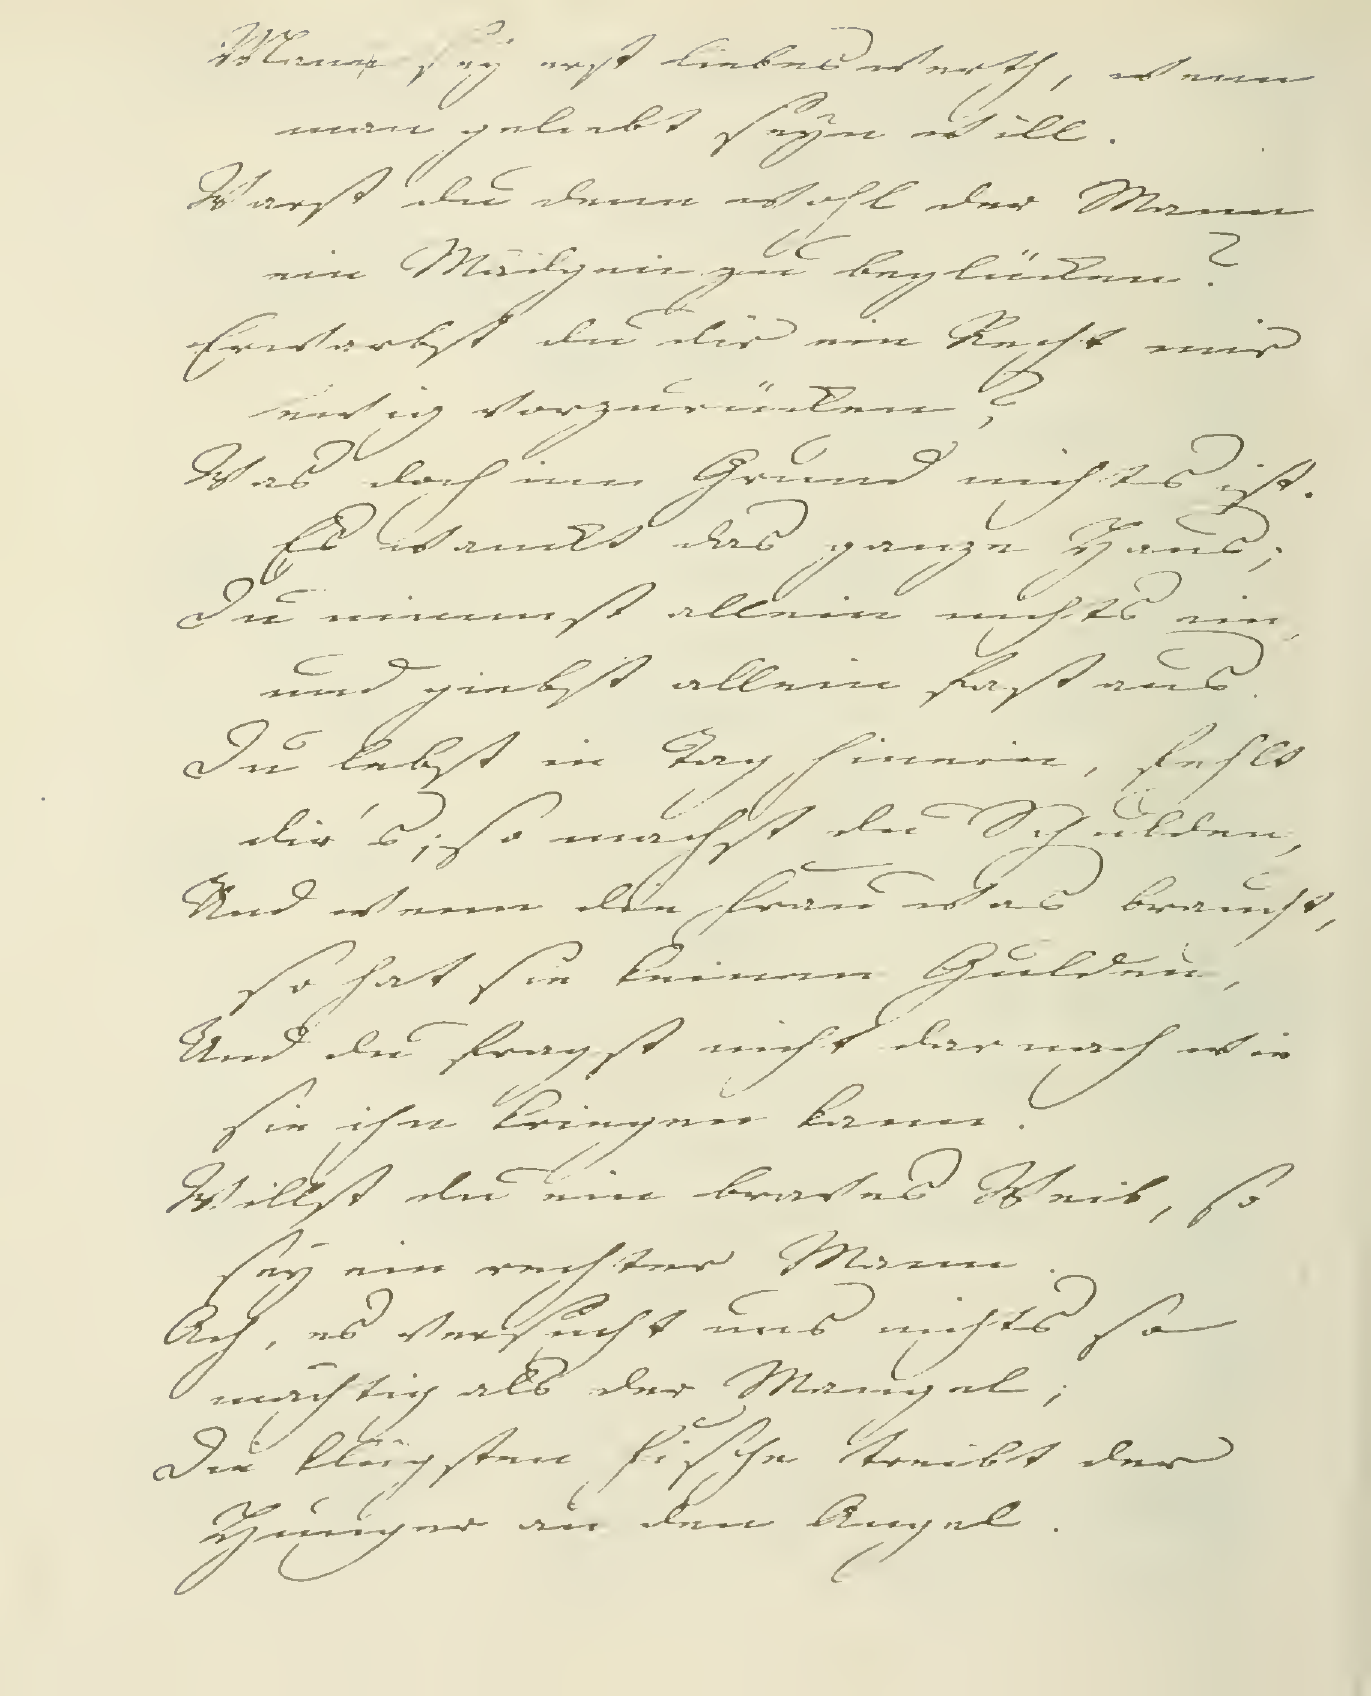 Mann sey erst liebenswerth, wenn
man geliebt seyn will.
Warst du denn wohl der Mann
ein Mädgen zu beglücken?
Erwarbst du dir ein Recht mir
ewig vorzurücken?
Was doch im Grund nichts ist.
Es wanckt das ganze Haus;
Du nimmst allein nichts ein,
und giebst allein fast aus.
Du lebst in Tag hinein, fehlt
dir's; so machst du Schulden,
Und wenn die Frau was braucht,
so hat sie keinen Gulden,
Und du fragst nicht darnach wie
sie ihn kriegen kann.
Willst du ein braves Weib, so
sey ein rechter Mann.
Ach, es versucht uns nichts so
mächtig als der Mangel;
Die klügsten Fische treibt der
Hunger an den Angel.